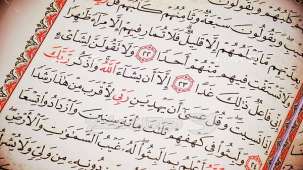 ويقولون سبعة وثامنهم كلبهم
ما يعلمهم إلا قليل فلا تمار فيهم إلا مراء ظهرا
ولا تستفت فيهم منهم أحدا ٢٢ ولا تقولن لشا۟ىء
إني فاعل ذلك غدا ٢٣ إلا أن يشاء الله واذكر ربك
إذا نسيت وقل عسى أن يهدين ربي لأقرب من هذا رشدا
ولبثوا في كهفهم ثلث مائة سنين وازدادوا تسعا
أعلم بما لبثوا له غيب السموت والأرض
دونه من ولي ولا